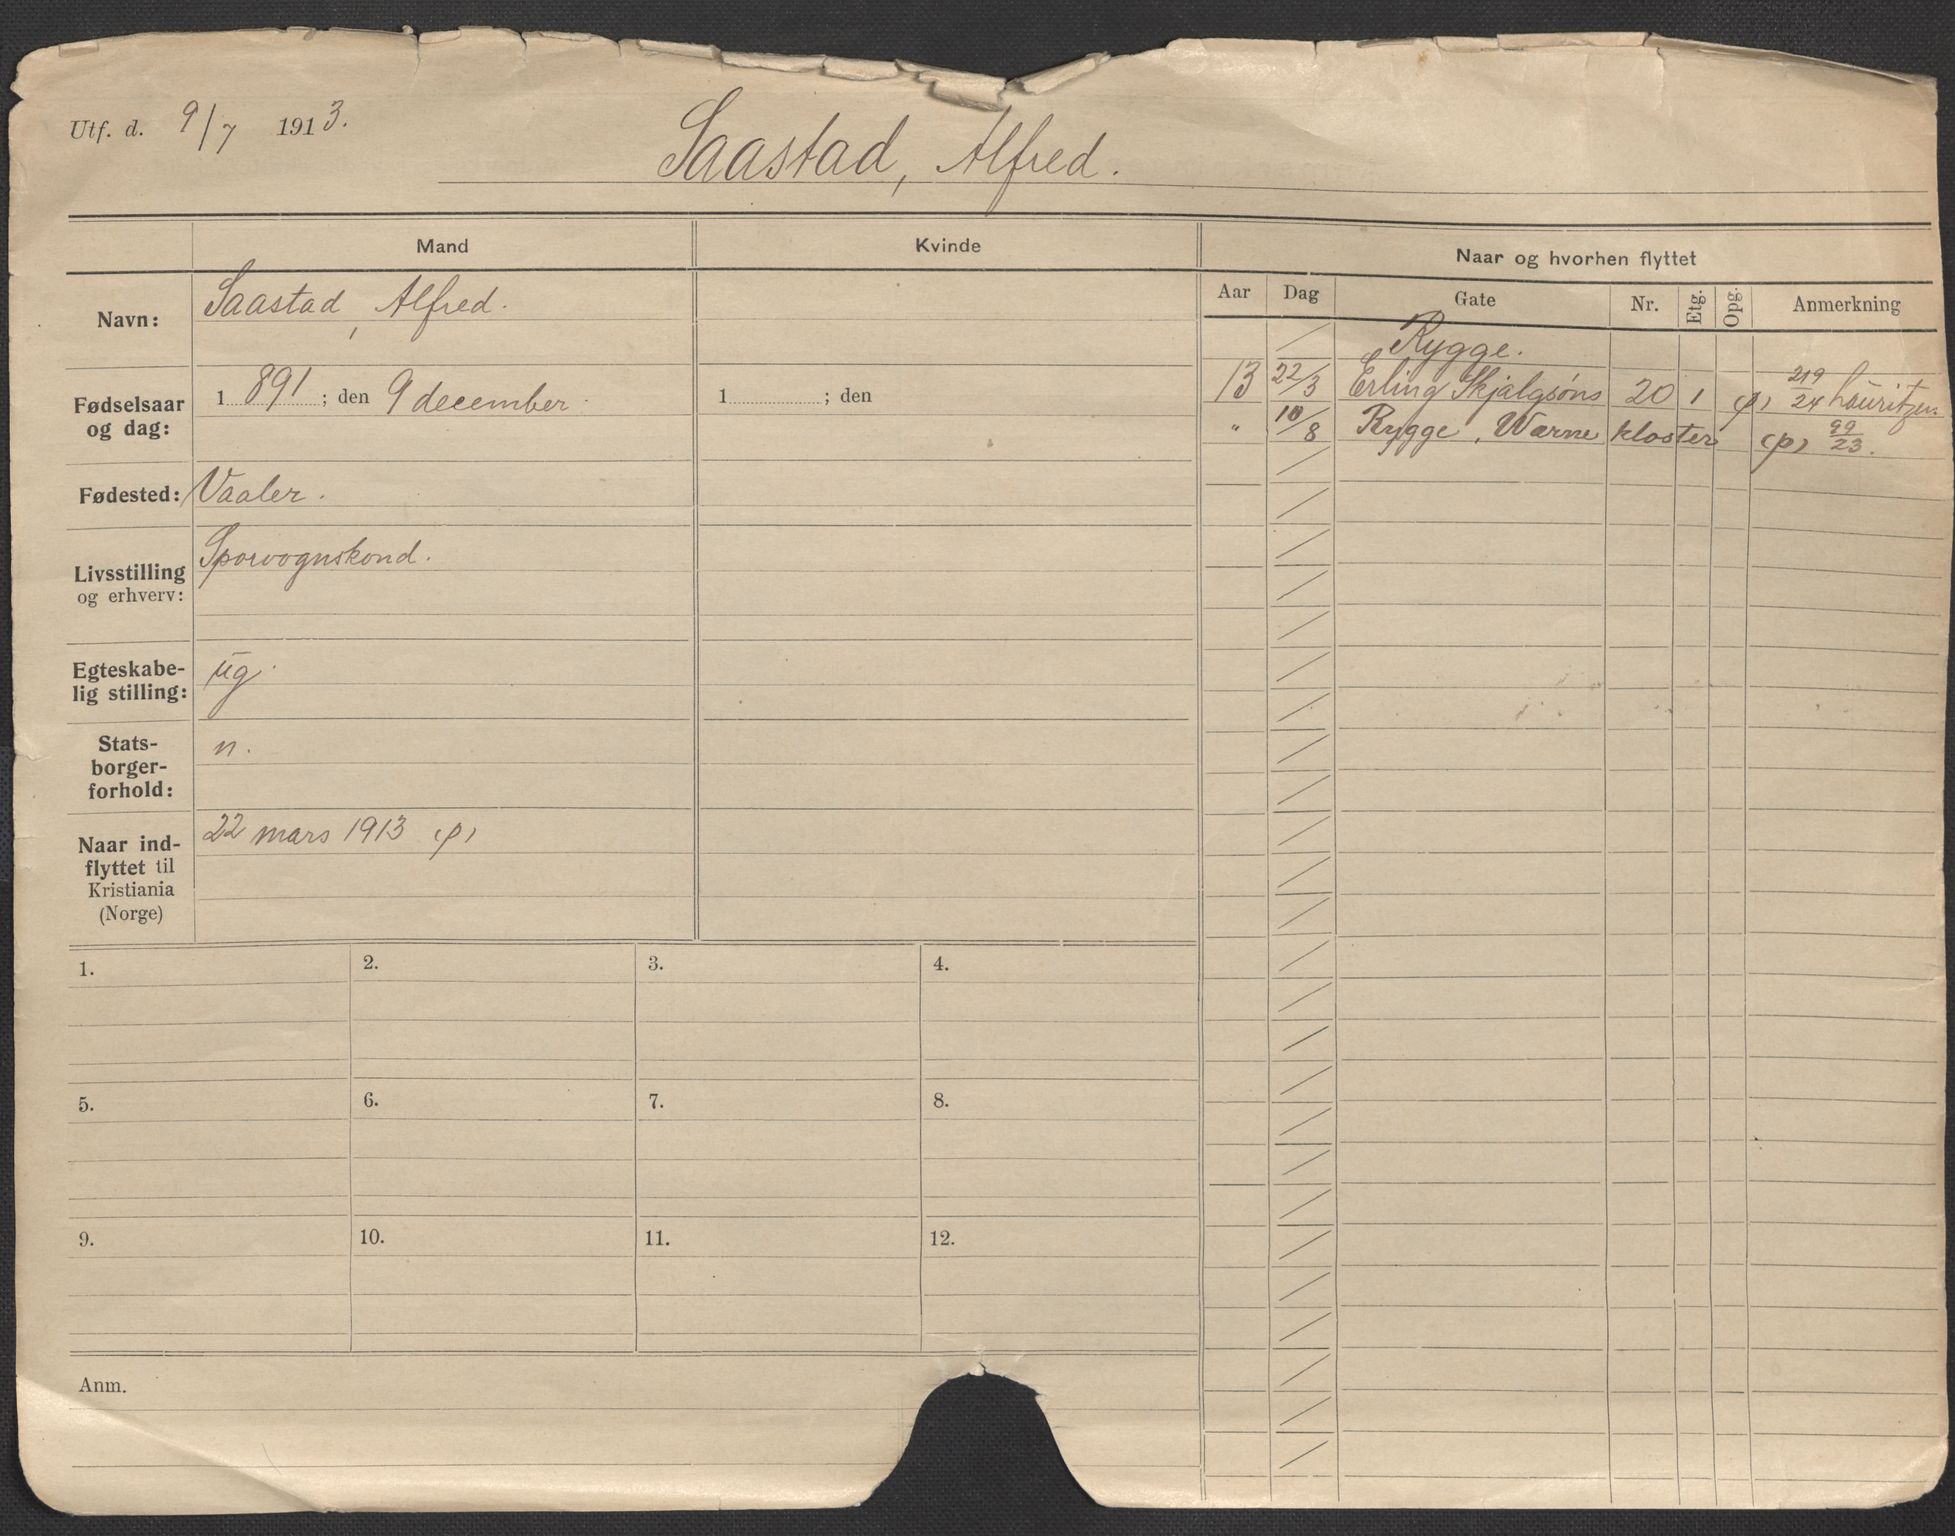 Utf. d. 9/7 1913.
Saastad, Alfred.
Mand
Kvinde
Navn: Saastad, Alfred.
Fødselsaar og dag: 1891; den 9 december. 1 ; den
Fødested: Vaaler.
Livsstilling og erhverv: Sporvognskond.
Egteskabe-
lig stilling: ug.
Stats-
borger-
forhold: n.
Naar ind-
flyttet til
Kristiania
(Norge) 22 mars 1913 (p)
1. 2. 3. 4.
5. 6. 7. 8.
9. 10. 11. 12.
Anm.
Naar og hvorhen flyttet
Aar Dag Gate Nr. Etg. Opg. Anmerkning
Rygge.
13 22/3 Erling Skjalgsøns 20 1 (p) 219/24 Lauritzen
" 10/8 Rygge, Warne kloster (p) 99/23.